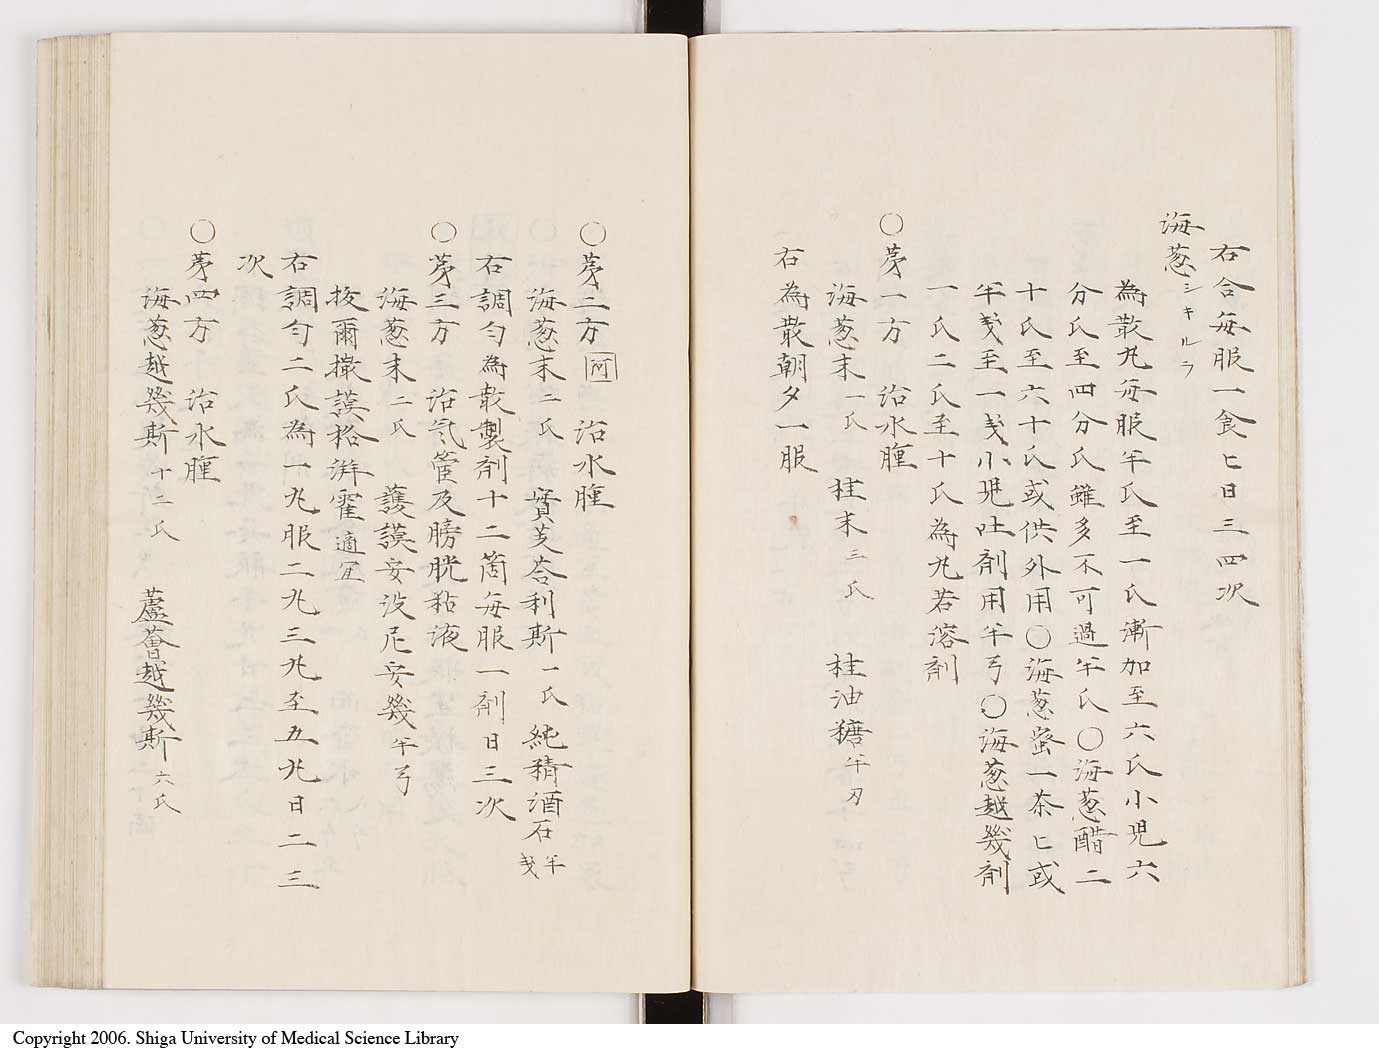 右合每服一食匕日三四次
海葱シキルラ
為散丸每服半氏至一氏漸加至六氏小児六
分氏至四分氏雖多不可過半氏〇海葱醋二
十氏至六十氏或供外用〇海葱蜜一茶匕或
半戔至一戔小児吐剤用半弓〇海葱越幾剤
一氏二氏至十氏為丸若溶剤
〇苐一方 治水腫
海葱末一氏 桂末三氏 桂油糖半刃
右為散朝夕一服
〇苐二方 阿 治水腫
海葱末二氏 實芰荅利斯一氏 純精酒石半戔
右調匀為散製剤十二箇每服一剤日三次
〇苐三方 治気管及膀胱粘液
海葱末二氏 護謨安没尼安幾半弓
抜爾撒謨格湃霍適宜
右調匀二氏為一丸服二丸三丸至五丸日二三
次
〇苐四方 治水腫
海葱越幾斯十二氏 蘆薈越幾斯六氏
Copyright 2006. Shiga University of Medical Science Library